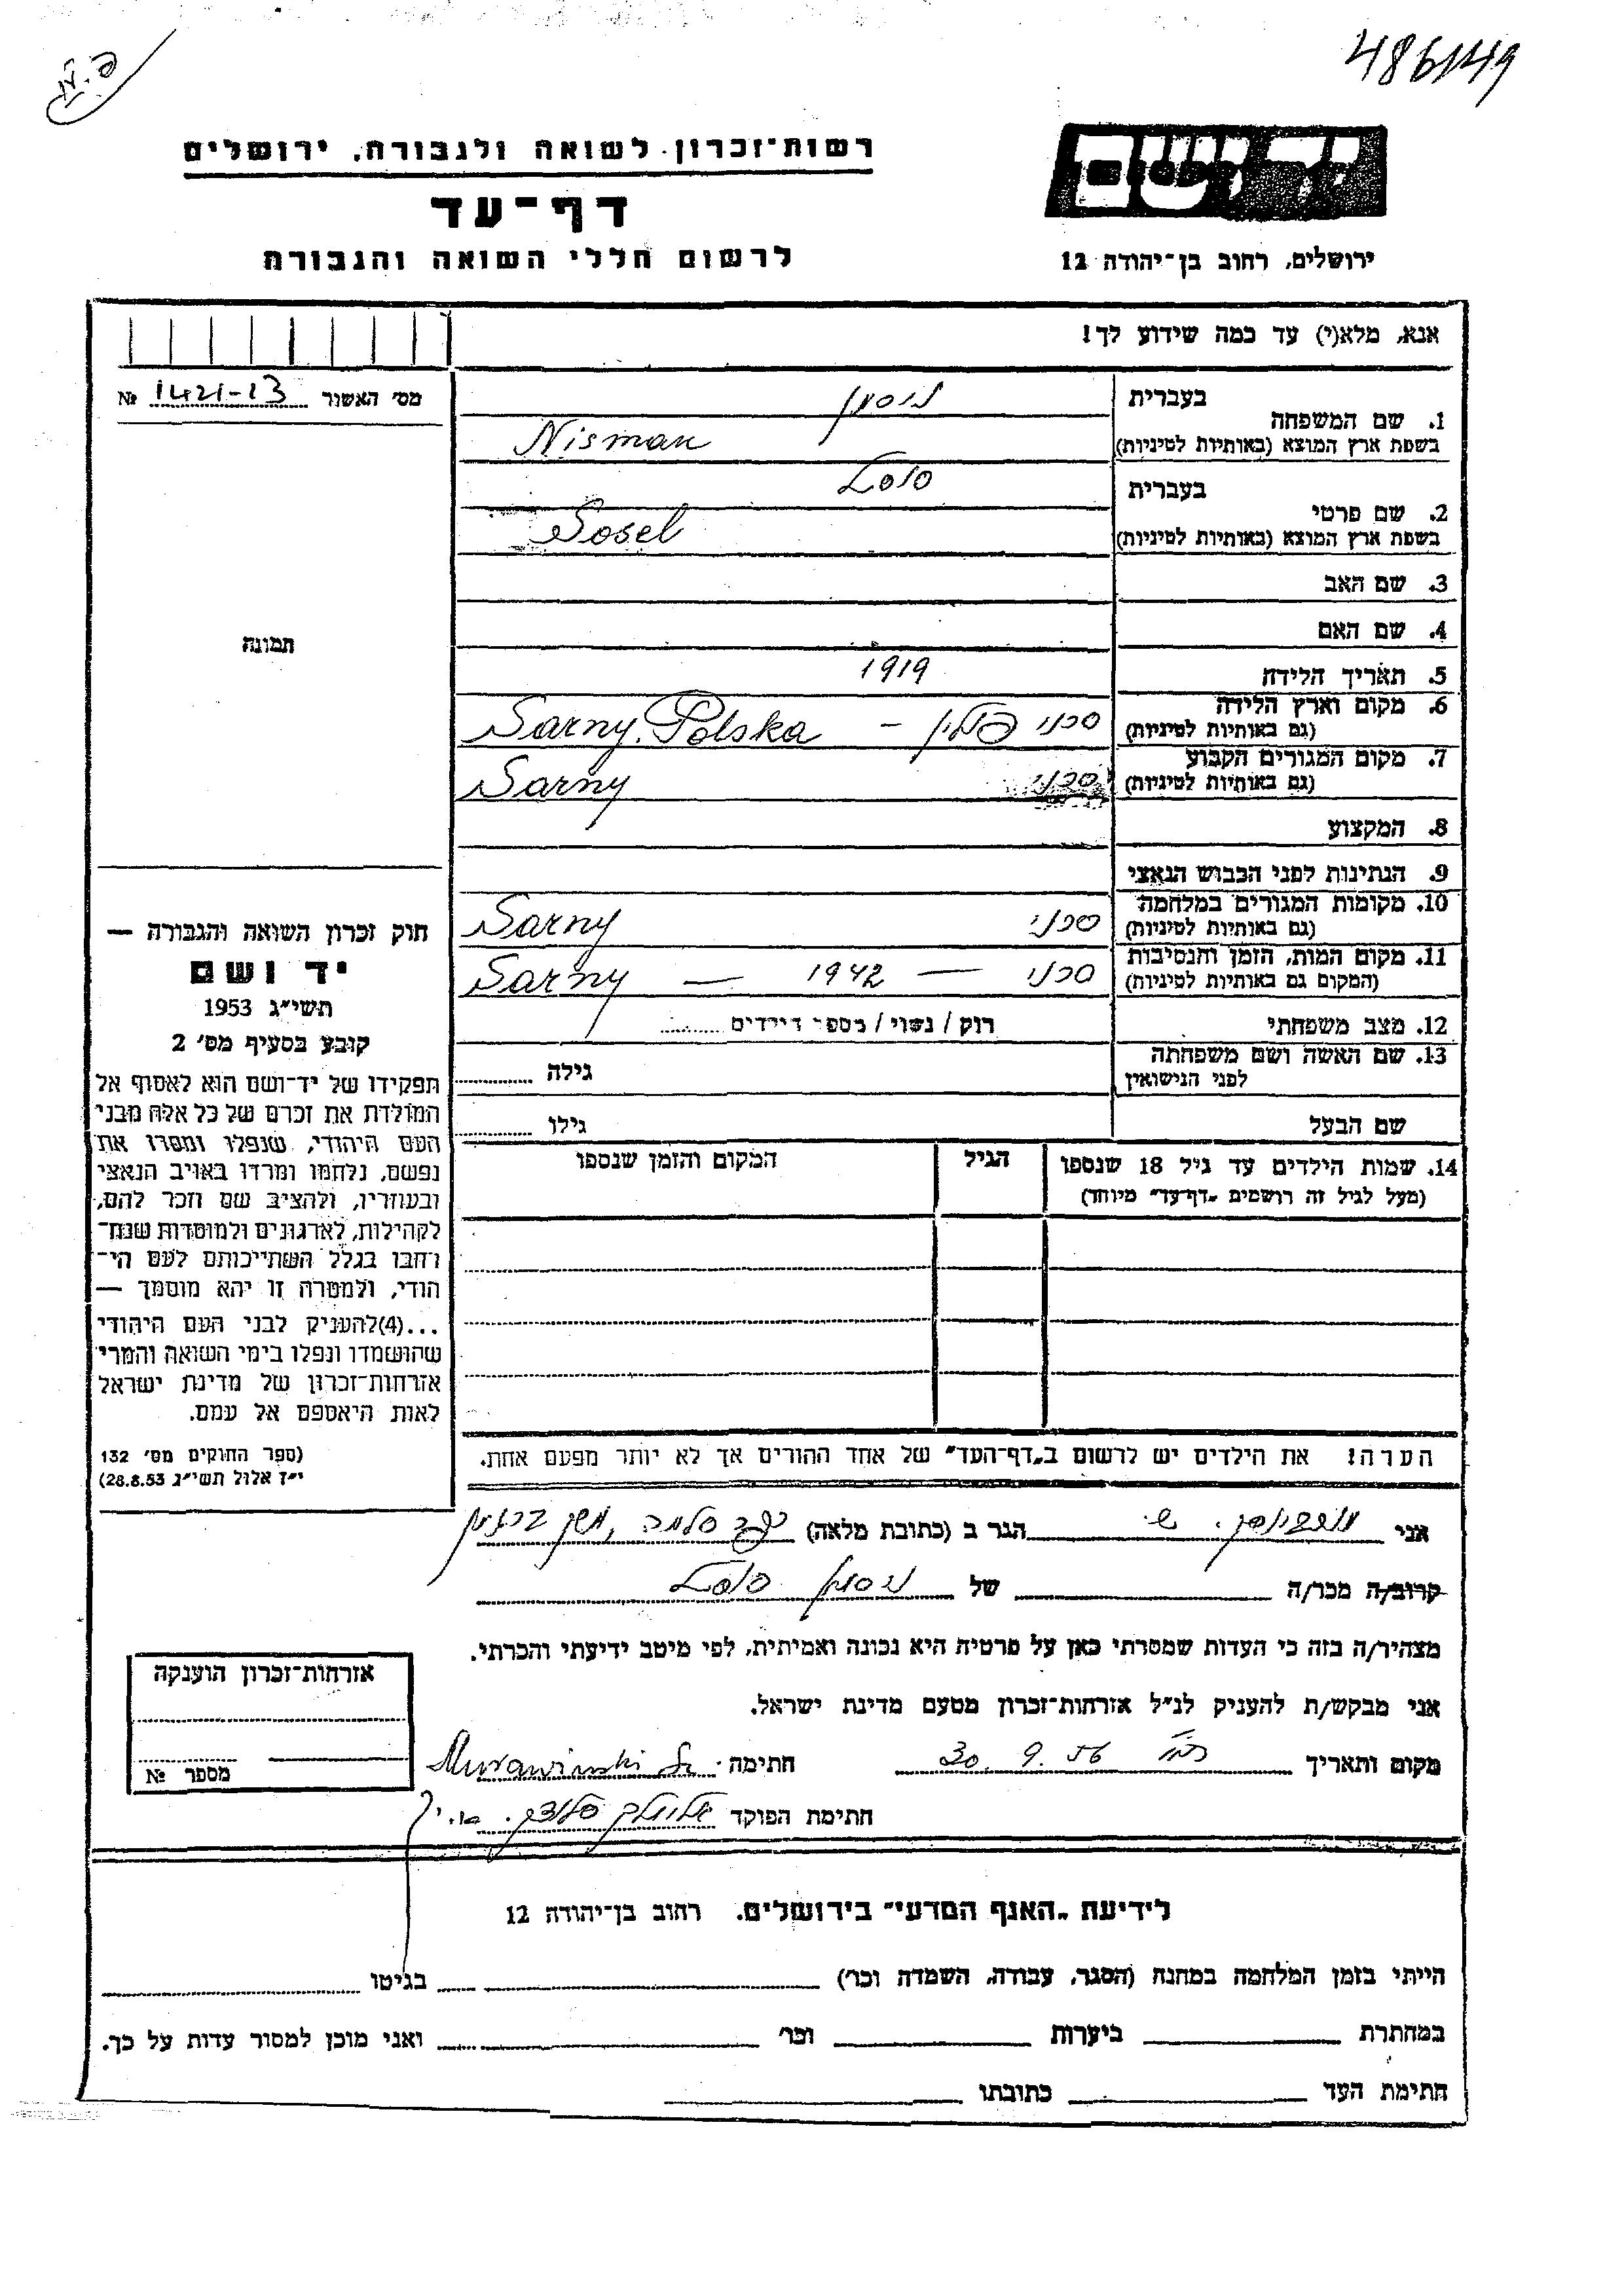 486149
יד ושם
רשות־זכרון לשואה ולגבורה, ירושלים
דף־עד
לרשום חללי השואה והגבורה
ירושלים, רחוב בן־יהודה 12
אנא, מלא(י) עד כמה שידוע לך!
מס׳ האשור 1421-13 №
1. שם המשפחה
בעברית ניסמן
בשפת ארץ המוצא (באותיות לטיניות) Nisman
2. שם פרטי
בעברית סוסל
בשפת ארץ המוצא (באותיות לטיניות) Sosel
3. שם האב
4. שם האם
5. תאריך הלידה 1919
6. מקום וארץ הלידה
(גם באותיות לטיניות) סרני פולין – Sarny, Polska
7. מקום המגורים הקבוע
(גם באותיות לטיניות) סרני Sarny
8. המקצוע
9. הנתינות לפני הכבוש הנאצי
10. מקומות המגורים במלחמה
(גם באותיות לטיניות) סרני Sarny
11. מקום המות, הזמן והנסיבות
(המקום גם באותיות לטיניות) סרני — 1942 — Sarny
12. מצב משפחתי רוק / נשוי / מספר הילדים
13. שם האשה ושם משפחתה
לפני הנישואין גילה
שם הבעל גילו
14. שמות הילדים עד גיל 18 שנספו
(מעל לגיל זה רושמים „דף־עד״ מיוחד)
הגיל
המקום והזמן שנספו
תמונה
חוק זכרון השואה והגבורה —
יד ושם
תשי״ג 1953
קובע בסעיף מס׳ 2
תפקידו של יד־ושם הוא לאסוף אל
המולדת את זכרם של כל אלה מבני
העם היהודי, שנפלו ומסרו את
נפשם, נלחמו ומרדו באויב הנאצי
ובעוזריו, ולהציב שם וזכר להם,
לקהילות, לארגונים ולמוסדות שנח־
רבו בגלל השתייכותם לעם הי־
הודי, ולמטרה זו יהא מוסמך —
...(4) להעניק לבני העם היהודי
שהושמדו ונפלו בימי השואה והמרי
אזרחות־זכרון של מדינת ישראל
לאות היאספם אל עמם.
(ספר החוקים מס׳ 132
י״ז אלול תשי״ג 28.8.53)
הערה! את הילדים יש לרשום ב„דף־העד״ של אחד ההורים אך לא יותר מפעם אחת.
אני הגר ב (כתובת מלאה) כפר סלמה,
קרוב/ה מכר/ה של ניסמן סוסל
מצהיר/ה בזה כי העדות שמסרתי כאן על פרטיה היא נכונה ואמיתית, לפי מיטב ידיעתי והכרתי.
אני מבקש/ת להעניק לנ״ל אזרחות־זכרון מטעם מדינת ישראל.
מקום ותאריך 30. 9. 56 חתימה
חתימת הפוקד
אזרחות־זכרון הוענקה
מספר №
לידיעת „האגף המדעי״ בירושלים, רחוב בן־יהודה 12
הייתי בזמן המלחמה במחנה (הסגר, עבודה, השמדה וכו׳) בגיטו
במחתרת ביערות וכו׳ ואני מוכן למסור עדות על כך.
חתימת העד כתובתו